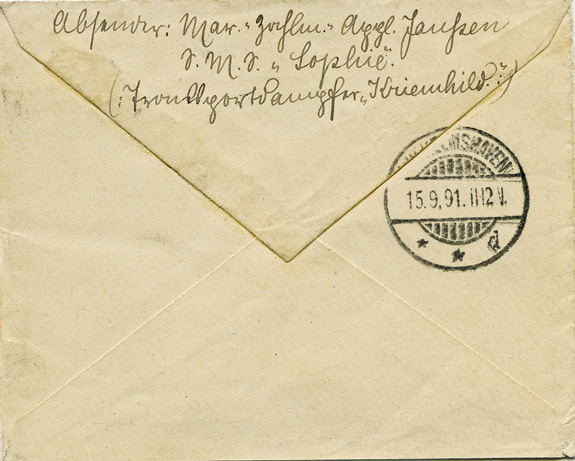 Absender: Mar.-Zahlm.-Appl. Janssen
S. M. S. „Sophie“.
(: Transportdampfer „Kriemhild“ :)
WILHELMSHAVEN
15.9.91. 11-12 V.
* * d